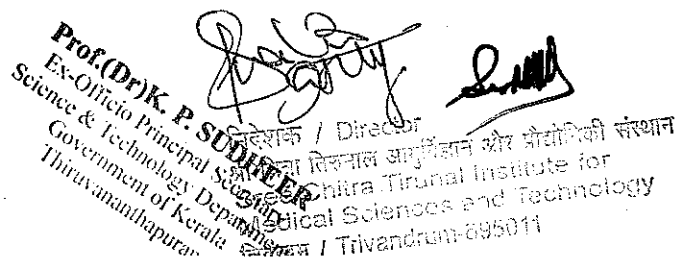 Prof.(Dr)K. P. SUDHEER
Ex-Officio Principal Secretary
Science & Technology Department
Government of Kerala
Thiruvananthapuram
निदेशक / Director
श्री चित्रा तिरुनाल आयुर्विज्ञान और प्रौद्योगिकी संस्थान
Sree Chitra Tirunal Institute for
Medical Sciences and Technology
/ Trivandrum-695011